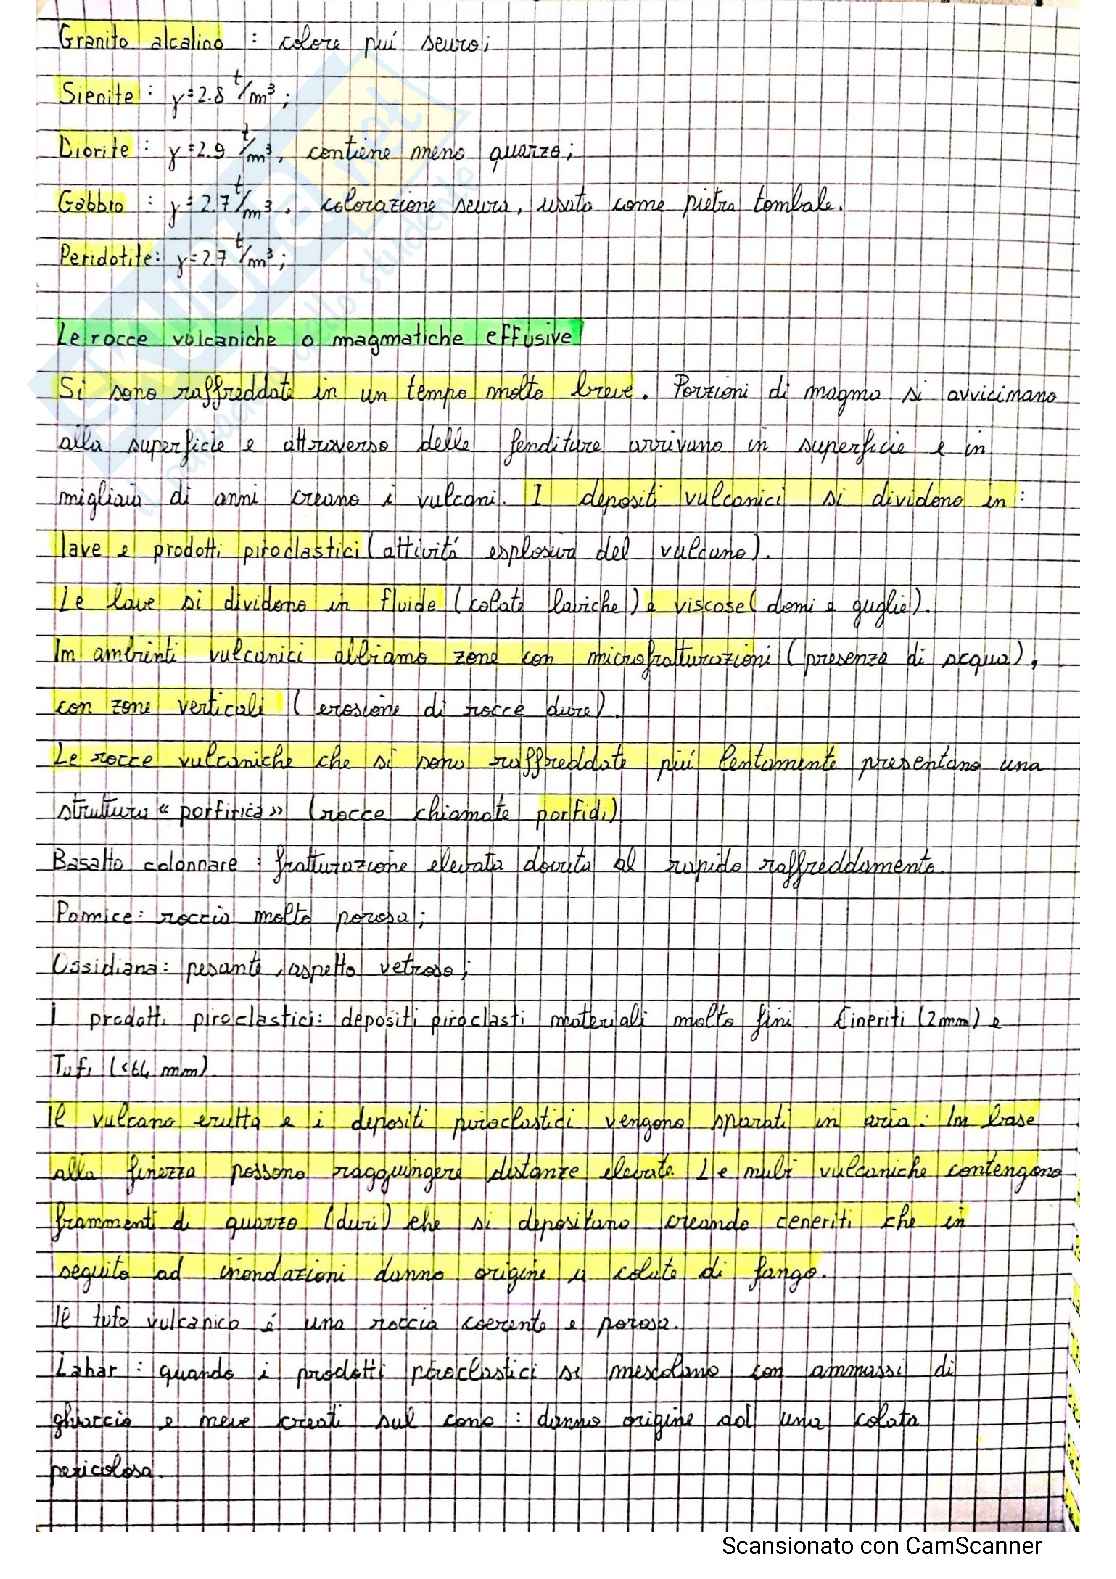 Granito alcalino : colore piú scuro;
Sienite : γ=2.8 t/m³;
Diorite : γ=2.9 t/m³, contiene meno quarzo;
Gabbro : γ=2.7 t/m³, colorazione scura, usata come pietra tombale.
Peridotite: γ=2.7 t/m³;
Le rocce vulcaniche o magmatiche effusive
Si sono raffreddate in un tempo molto breve. Porzioni di magma si avvicinano
alla superficie e attraverso delle fenditure arrivano in superficie e in
migliaia di anni creano i vulcani. I depositi vulcanici si dividono in :
lave e prodotti piroclastici (attivitá esplosiva del vulcano).
Le lave si dividono in fluide (colate laviche) e viscose (domi e guglie).
In ambienti vulcanici abbiamo zone con microfratturazioni (presenza di acqua),
con zone verticali (erosione di rocce dure).
Le rocce vulcaniche che si sono raffreddate piú lentamente presentano una
struttura « porfirica» (rocce chiamate porfidi)
Basalto colonnare : fratturazione elevata dovuta al rapido raffreddamento.
Pomice: roccia molto porosa;
Ossidiana: pesante, aspetto vetroso;
I prodotti piroclastici: depositi piroclasti materiali molto fini Cineriti (2mm) e
Tufi (<64 mm).
Il vulcano erutta e i depositi piroclastici vengono sparati in aria. In base
alla finezza possono raggiungere distanze elevate. Le nubi vulcaniche contengono
frammenti di quarzo (duri) che si depositano creando ceneriti che in
seguito ad inondazioni danno origine a colate di fango.
Il tufo vulcanico é una roccia coerente e porosa.
Lahar : quando i prodotti piroclastici si mescolano con ammassi di
ghiaccio e neve creati sul cono : danno origine ad una colata
pericolosa.
Scansionato con CamScanner